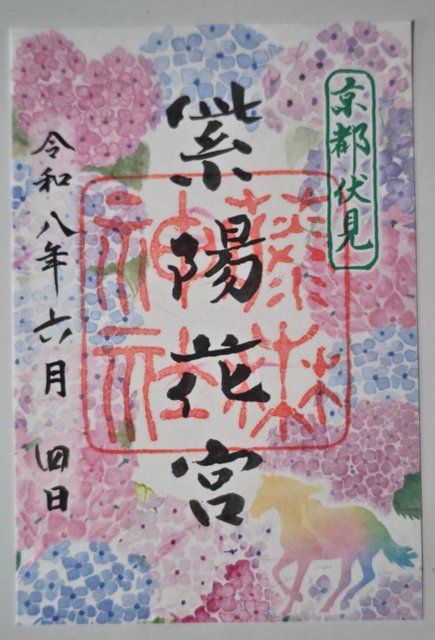 京都伏見
紫陽花宮
藤森
神社
令和八年六月四日